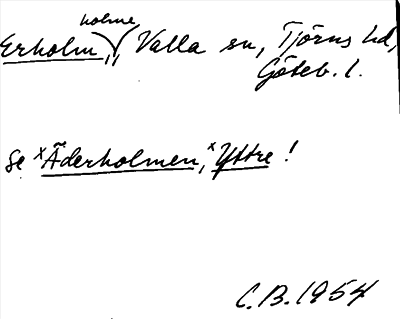 holme
Erholm, Valla sn, Tjörns hd,
Göteb. l.
Se ˣÄderholmen, ˣYttre !
C.B. 1954